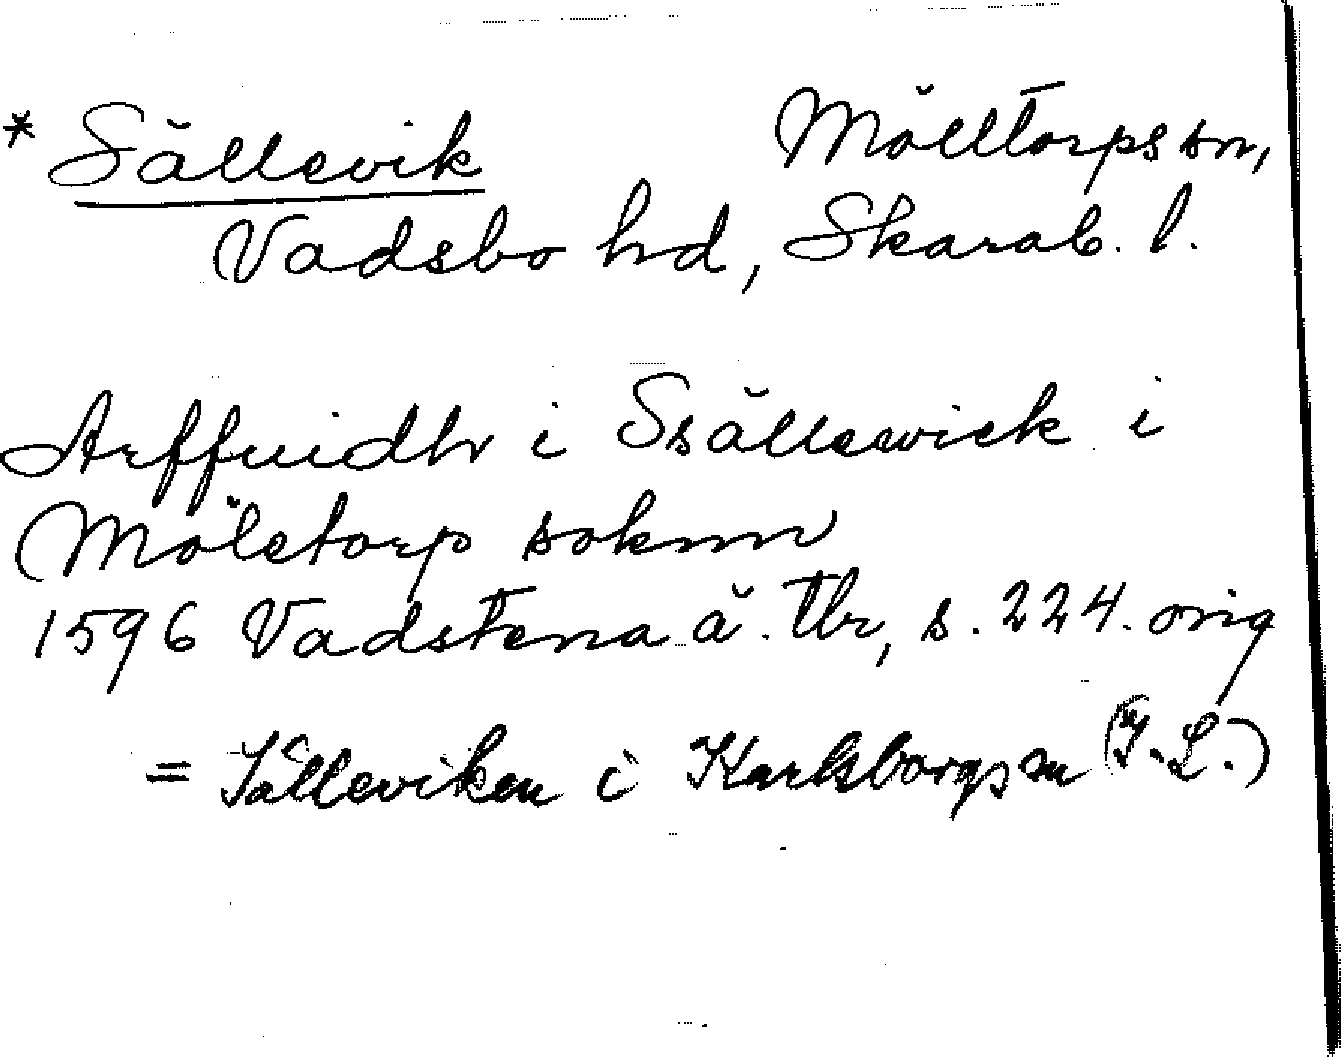 * Sällevik Mölltorps sn,
Vadsbo hd, Skarab. l.
Arffuidh i Ssällewick i
Möletorp soknn
1596 Vadstena ä. tbr, s. 224. orig
= Sätteviken i Karlsborgs sn (I. L.)